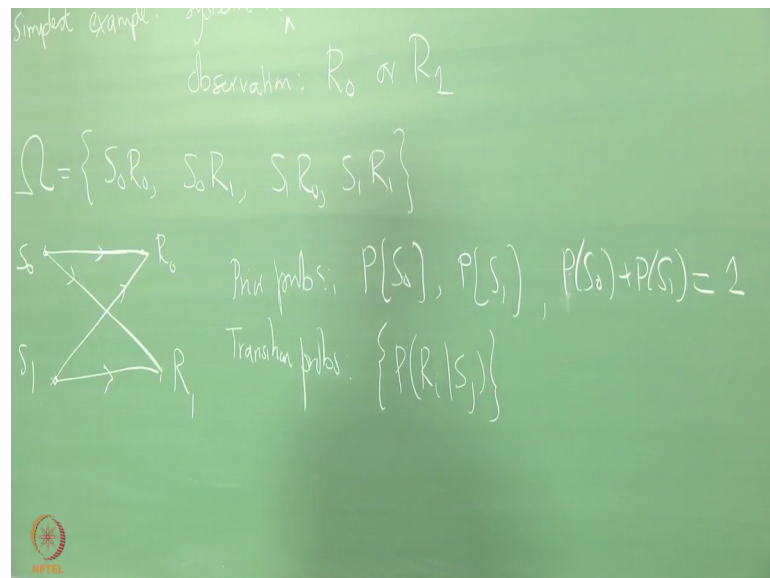 Simplest example:
observation: R₀ or R₁
Ω = { S₀R₀, S₀R₁, S₁R₀, S₁R₁ }
S₀ R₀
Prior probs: P[S₀], P[S₁], P(S₀)+P(S₁) = 1
Transition probs. {P(Rᵢ|Sⱼ)}
S₁ R₁
NPTEL